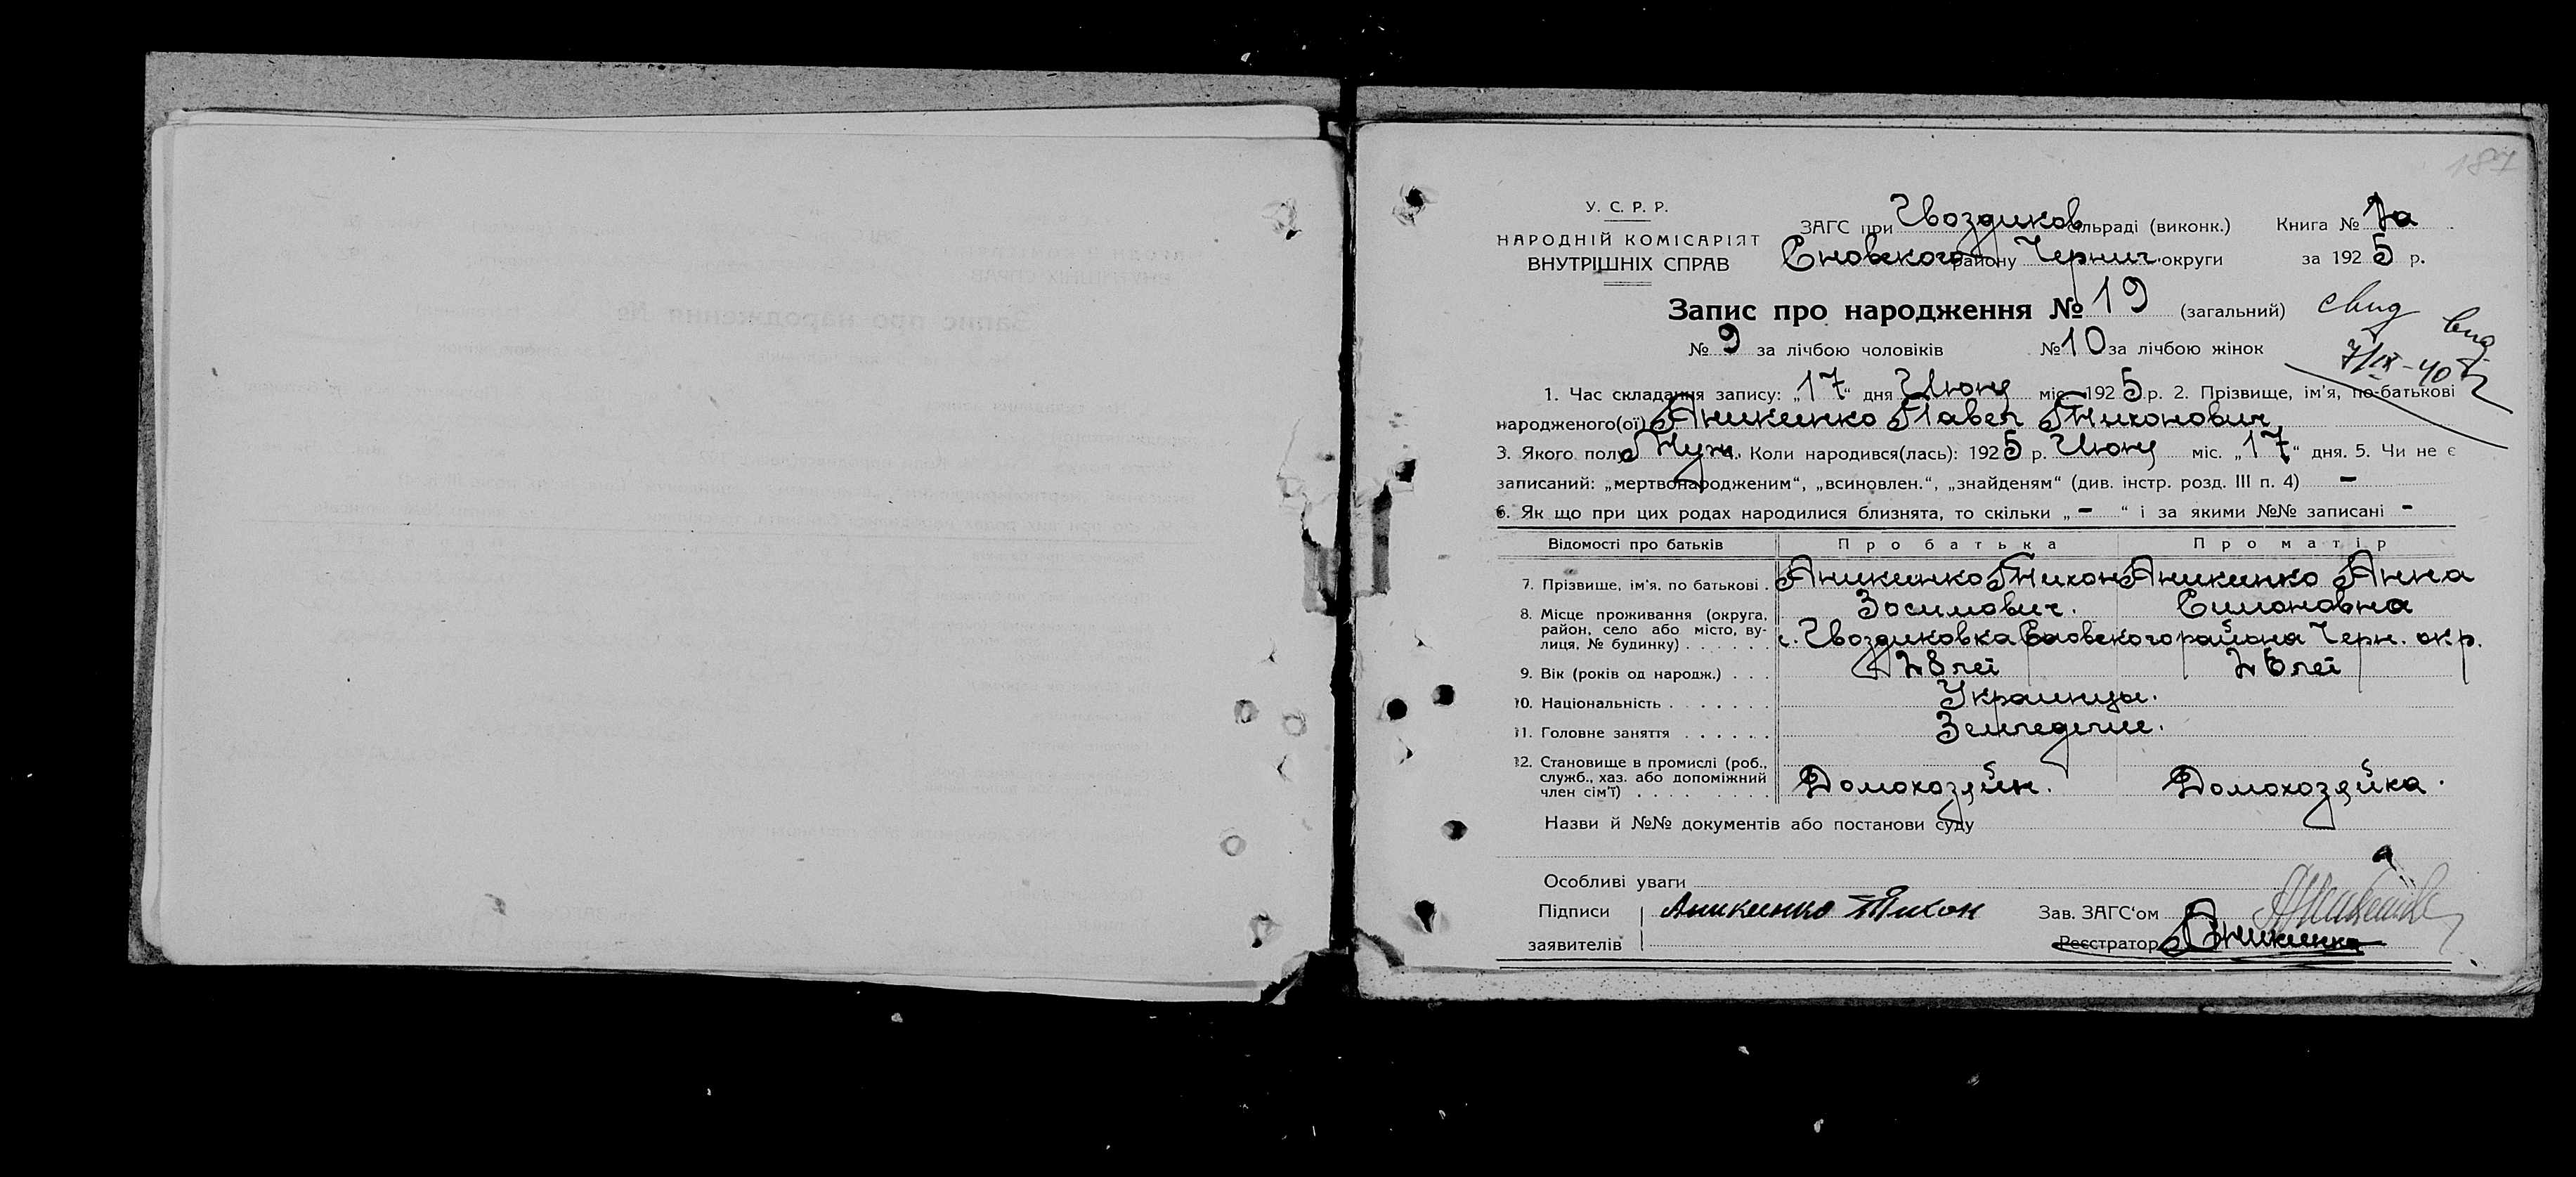 187
У. С. Р. Р.
НАРОДНІЙ КОМІСАРІЯТ
ВНУТРІШНІХ СПРАВ
ЗАГС при Гвоздиков сільраді (виконк.) Книга № 1а
Сновского району Черниг. округи за 1925 р.
Запис про народження № 19 (загальний)
свид
выд
№ 9 за лічбою чоловіків № 10 за лічбою жінок
7/IX-40
1. Час складання запису: „17“ дня Июня міс. 1925 р. 2. Прізвище, ім'я, по-батькові
народженого(ої) Аникиенко Павел Тихонович
3. Якого полу Муж. 4. Коли народився(лась): 1925 р. Июня міс. „17“ дня. 5. Чи не є
записаний: „мертвонародженим“, „всиновлен.“, „знайденям“ (див. інстр. розд. III п. 4) -
6. Як що при цих родах народилися близнята, то скільки „-“ і за якими №№ записані -
Відомості про батьків Про батька Про матір
7. Прізвище, ім'я, по батькові . Аникиенко Тихон Аникиенко Анна
Зосимович. Симоновна
8. Місце проживання (округа,
район, село або місто, ву-
лиця, № будинку) . . . . . . с. Гвоздиковка Сновского района Черн. окр.
9. Вік (років од народж.) . . . 28 лет 26 лет
10. Національність . . . . . . . Украинцы.
11. Головне заняття . . . . . . Земледелие.
12. Становище в промислі (роб.,
служб., хаз. або допоміжний
член сім'ї) . . . . . . . . . Домохозяин. Домохозяйка.
Назви й №№ документів або постанови суду
Особливі уваги
Підписи Аникиенко Тихон Зав. ЗАГС'ом
заявителів Реєстратор Аникиенко